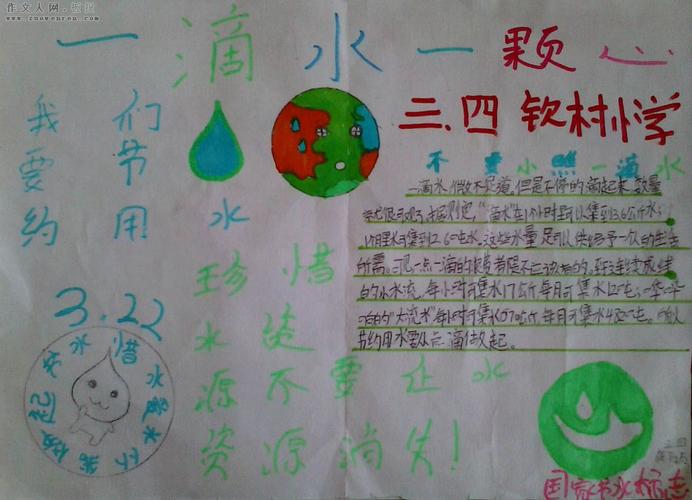 作文人网
www.zuowenren.com
一滴水一颗心
三.四 钦村小学
我们
要节
约用水
3.22
珍惜
水资
源不要让水
资源消失！
不要小瞧一滴水
一滴水,微不足道.但是不停的滴起来,数量
"滴水"在1个小时里可以集到3.6公斤水;
1个月里可集到2.6吨水.这些水量,足可以供给予一个人的生活
所需.可见一点一滴的浪费都是不应该有的.至于连续成线
的小水流,每小时可集水17公斤,每月可集水12吨;
的"大流水"每小时可集水670公斤,每月可集水482吨.所以
节约用水要从点滴做起.
节水 惜水 做起
国家节水标志
三四